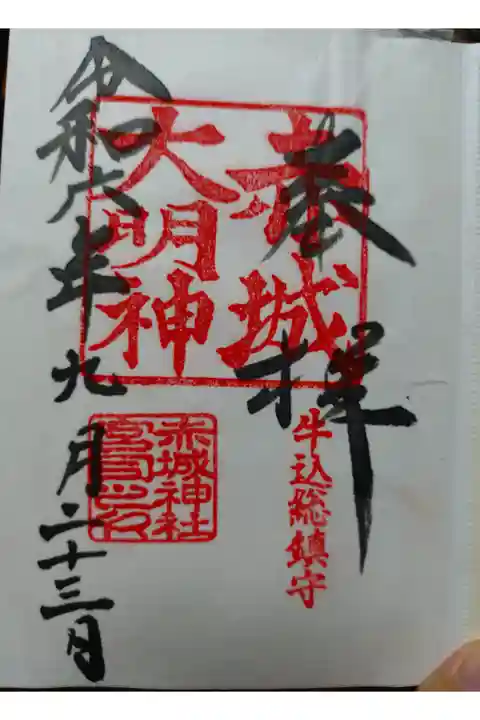 奉拝
牛込総鎮守
赤城
大明神
赤城神社
宮司之印
令和六年九月二十三日